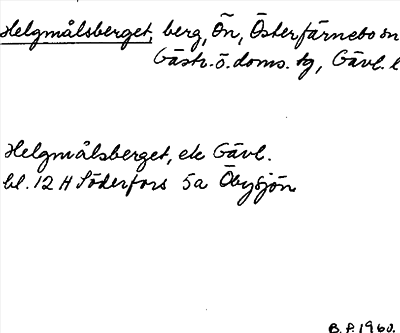 Helgmålsberget, berg, Ön, Österfärnebo sn
Gästr. ö. doms. tg, Gävl. l
Helgmålsberget, ek Gävl.
bl. 12 H Söderfors 5a Öbysjön
B.P. 1960.